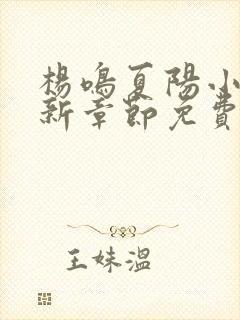 楊鳴夏陽小
新章節免費
王妹溫